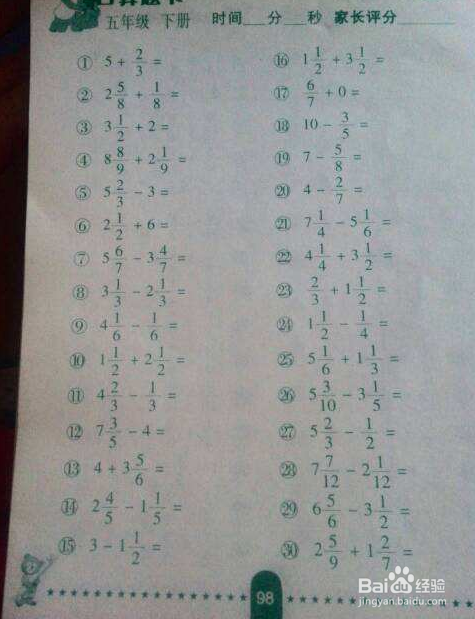 口算题卡
五年级 下册 时间___分___秒 家长评分______
① 5 + 2/3 =
② 2 5/8 + 1/8 =
③ 3 1/2 + 2 =
④ 8 8/9 + 2 1/9 =
⑤ 5 2/3 − 3 =
⑥ 2 1/2 + 6 =
⑦ 5 6/7 − 3 4/7 =
⑧ 3 1/3 − 2 1/3 =
⑨ 4 1/6 − 1/6 =
⑩ 1 1/2 + 2 1/2 =
⑪ 4 2/3 − 1/3 =
⑫ 7 3/5 − 4 =
⑬ 4 + 3 5/6 =
⑭ 2 4/5 − 1 1/5 =
⑮ 3 − 1 1/2 =
⑯ 1 1/2 + 3 1/2 =
⑰ 6/7 + 0 =
⑱ 10 − 3/5 =
⑲ 7 − 5/8 =
⑳ 4 − 2/7 =
㉑ 7 1/4 − 5 1/6 =
㉒ 4 1/4 + 3 1/2 =
㉓ 2/3 + 1 1/2 =
㉔ 1 1/2 − 1/4 =
㉕ 5 1/6 + 1 1/3 =
㉖ 5 3/10 − 3 1/5 =
㉗ 5 2/3 − 1/2 =
㉘ 7 7/12 − 2 1/12 =
㉙ 6 5/6 − 3 1/2 =
㉚ 2 5/9 + 1 2/7 =
98
Baidu经验
jingyan.baidu.com